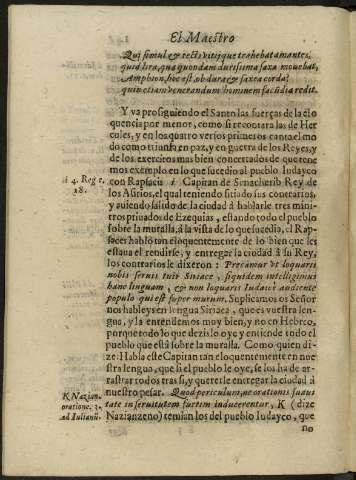 El Maestro
Qui simul & tectis vitijque trahebat amantes,
quid lira, qua quondam durissima saxa mouebat,
Amphion, hoc est, ob dura & saxea corda?
quin etiam venerandum hominem facũdia reddit.
Y va prosiguiendo el Santo las fuerças de la elo
quencia por menor, como si recontara las de Her
cules, y en los quatro versos primeros canta el mo
do como triunfa en paz, y en guerra de los Reyes, y
de los exercitos mas bien concertados de que tene
mos exemplo en lo que sucedio al pueblo Iudayco
con Rapsacis i Capitan de Senacherib Rey de
i 4. Reg. c.
18.
los Asirios, el qual teniendo sitiado sus contrarios,
y auiendo salido de la ciudad à hablarle tres mini-
stros priuados de Ezequias, estando todo el pueblo
sobre la muralla, à la vista de lo que sucedia, el Rap-
saces habló tan eloquentemente de lo bien que les
estaua el rendirse, y entregar la ciudad à su Rey,
los contrarios le dixeron: Precamur vt loquaris
nobis seruis tuis Siriace, siquidem intelligimus
hanc linguam, & non loquaris Iudaicè audiente
populo qui est super murum. Suplicamos os Señor
nos hableys en lengua Siriaca, que es vuestra len-
gua, y la entendemos muy bien, y no en Hebreo,
porque todo lo que dezis lo oye y entiende todo el
pueblo que està sobre la muralla. Como quien di-
ze: Habla este Capitan tan eloquentemente en nue
stra lengua, que si el pueblo le oye, se los ha de ar-
rastrar todos tras si, y quererle entregar la ciudad à
nuestro pesar. Quod periculum, ne orationis suaui
K Nazian.
oratione. 3.
ad Iulianũ.
tate in seruitutem furtim inducerentur, K (dize
Nazianzeno) temian los del pueblo Iudayco, que
no